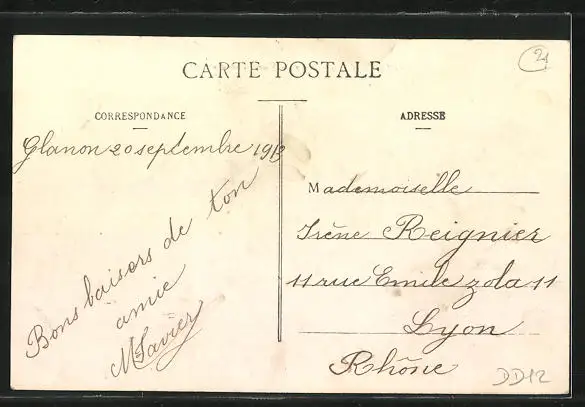 CARTE POSTALE
21
CORRESPONDANCE
Glanon 20 septembre 1913
Bons baisers de ton
amie
ADRESSE
Mademoiselle
Irène Reignier
11 rue Emile zola 11
Lyon
Rhône
DD12